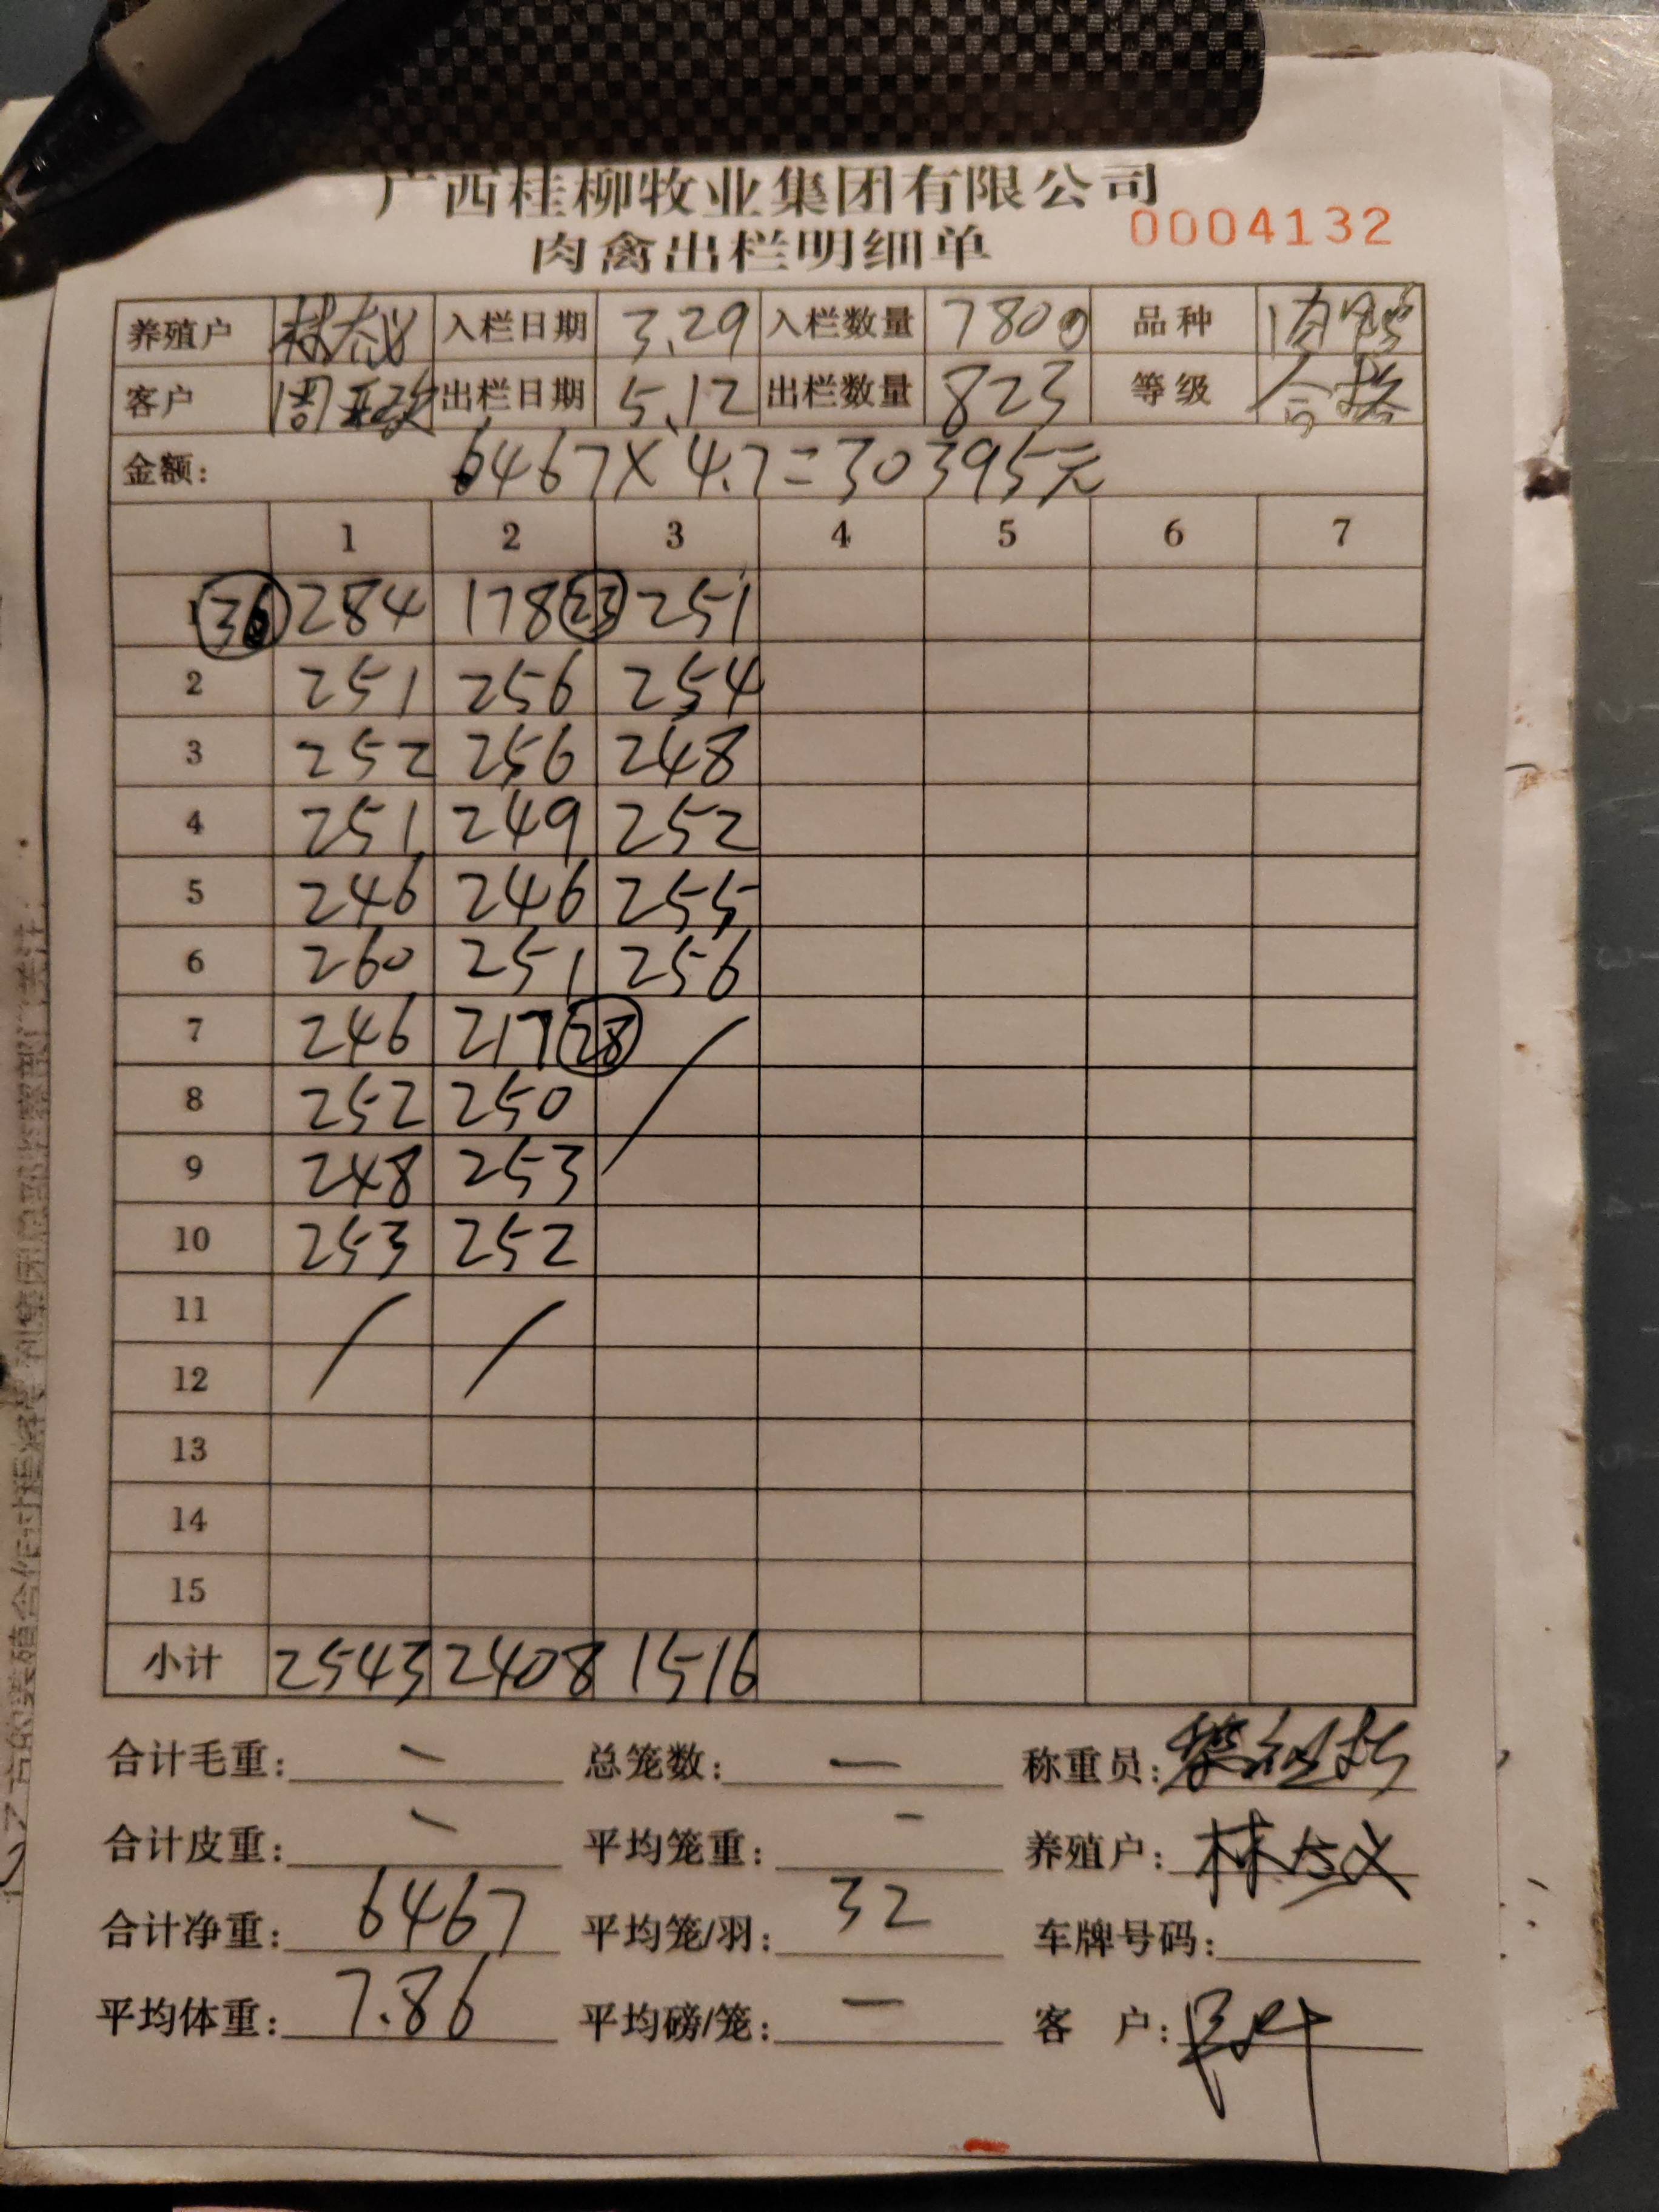 广西桂柳牧业集团有限公司
肉禽出栏明细单 0004132
养殖户 林太义 入栏日期 3.29 入栏数量 7800 品种 肉鸭
客户 出栏日期 5.12 出栏数量 823 等级 合格
金额: 6467×4.7=30395元
1 2 3 4 5 6 7
1 36 284 178 23 251
2 251 256 254
3 252 256 248
4 251 249 252
5 246 246 255
6 260 251 256
7 246 217 28
8 252 250
9 248 253
10 253 252
11
12
13
14
15
小计 2543 2408 1516
合计毛重: — 总笼数: — 称重员:
合计皮重: — 平均笼重: - 养殖户: 林太义
合计净重: 6467 平均笼/羽: 32 车牌号码:
平均体重: 7.86 平均磅/笼: — 客 户: